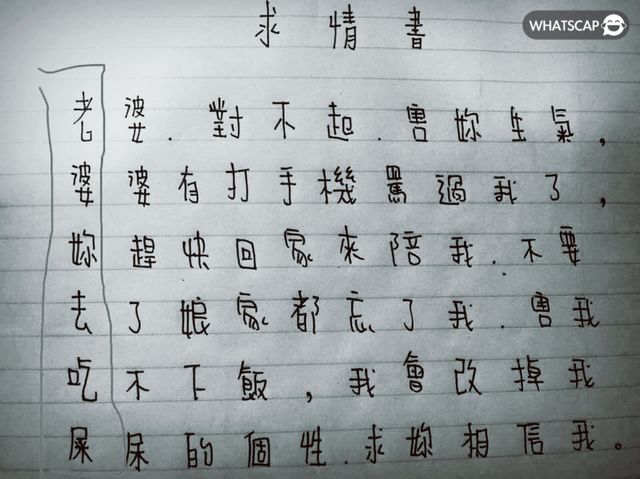 WHATSCAP
求情書
老婆.對不起.害妳生氣,
婆婆有打手機罵過我了,
妳趕快回家來陪我.不要
去了娘家都忘了我.害我
吃不下飯,我會改掉我
屎尿的個性.求妳相信我。